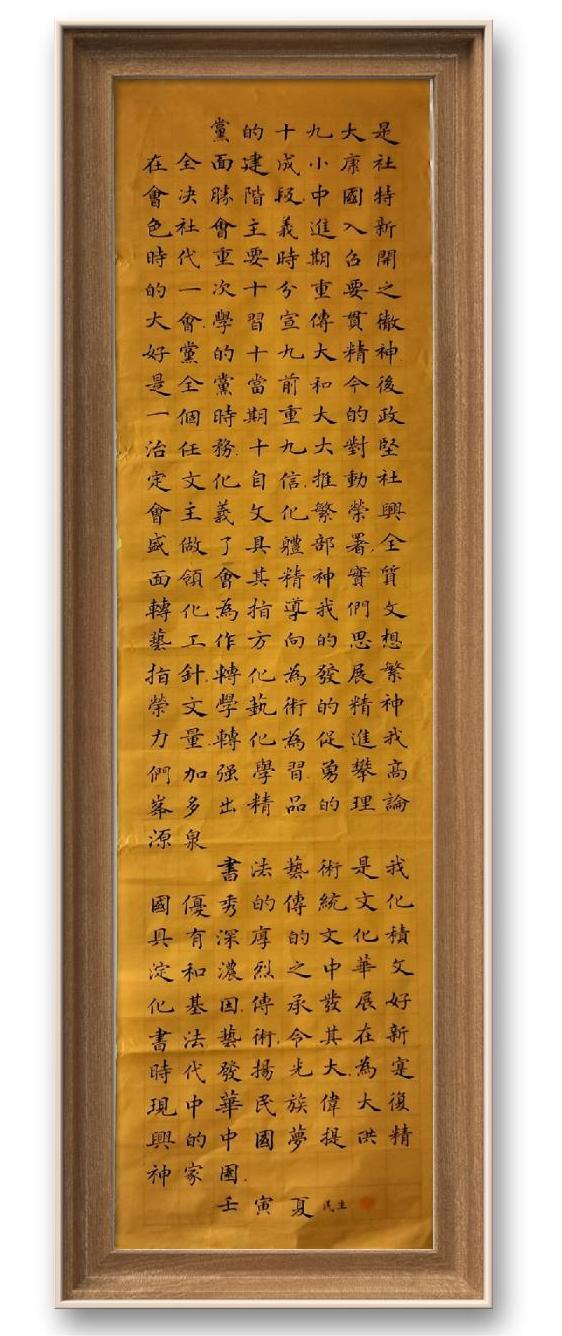 黨的十九大是
在全面建成小康社
會決勝階段中國特
色社會主義進入新
時代重要時期召開
的一次十分重要之
大會.學習宣傳貫徹
好黨的十九大精神
是全黨當前和今後
一個時期重大的政
治任務.十九大對堅
定文化自信.推動社
會主義文化繁榮興
盛做了具體部署.全
面領會其精神實質
轉化為指導我們文
藝工作方向的思想
指針.轉化為發展繁
榮文學藝術的精神
力量.轉化為促進我
們加强學習.勇攀高
峯多出精品的理論
源泉
書法藝術是我
國優秀的傳統文化
具有深厚的文化積
淀和濃烈之中華文
化基因.傳承發展好
書法藝術.令其在新
時代發揚光大.為寔
現中華民族偉大復
興的中國夢提供精
神家國.
壬寅夏